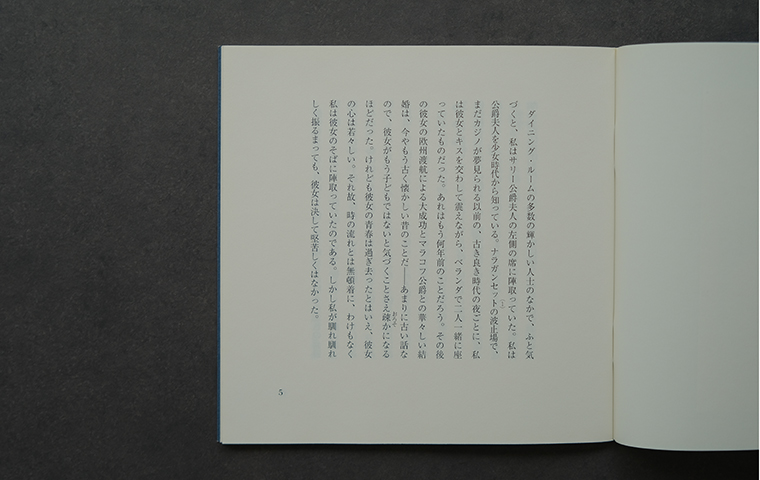 ダイニング・ルームの多数の輝かしい人士のなかで、ふと気
づくと、私はサリー公爵夫人の左側の席に陣取っていた。私は
公爵夫人を少女時代から知っている。ナラガンセットの波止場で、
まだカジノが夢見られる以前の、古き良き時代の夜ごとに、私
は彼女とキスを交わして震えながら、ベランダで二人一緒に座
っていたものだった。あれはもう何年前のことだろう。その後
の彼女の欧州渡航による大成功とマラコフ公爵との華々しい結
婚は、今やもう古く懐かしい昔のことだ――あまりに古い話な
ので、彼女がもう子どもではないと気づくことさえ疎かになる
ほどだった。けれども彼女の青春は過ぎ去ったとはいえ、彼女
の心は若々しい。それ故、時の流れとは無頓着に、わけもなく
私は彼女のそばに陣取っていたのである。しかし私が馴れ馴れ
しく振るまっても、彼女は決して堅苦しくはなかった。
5